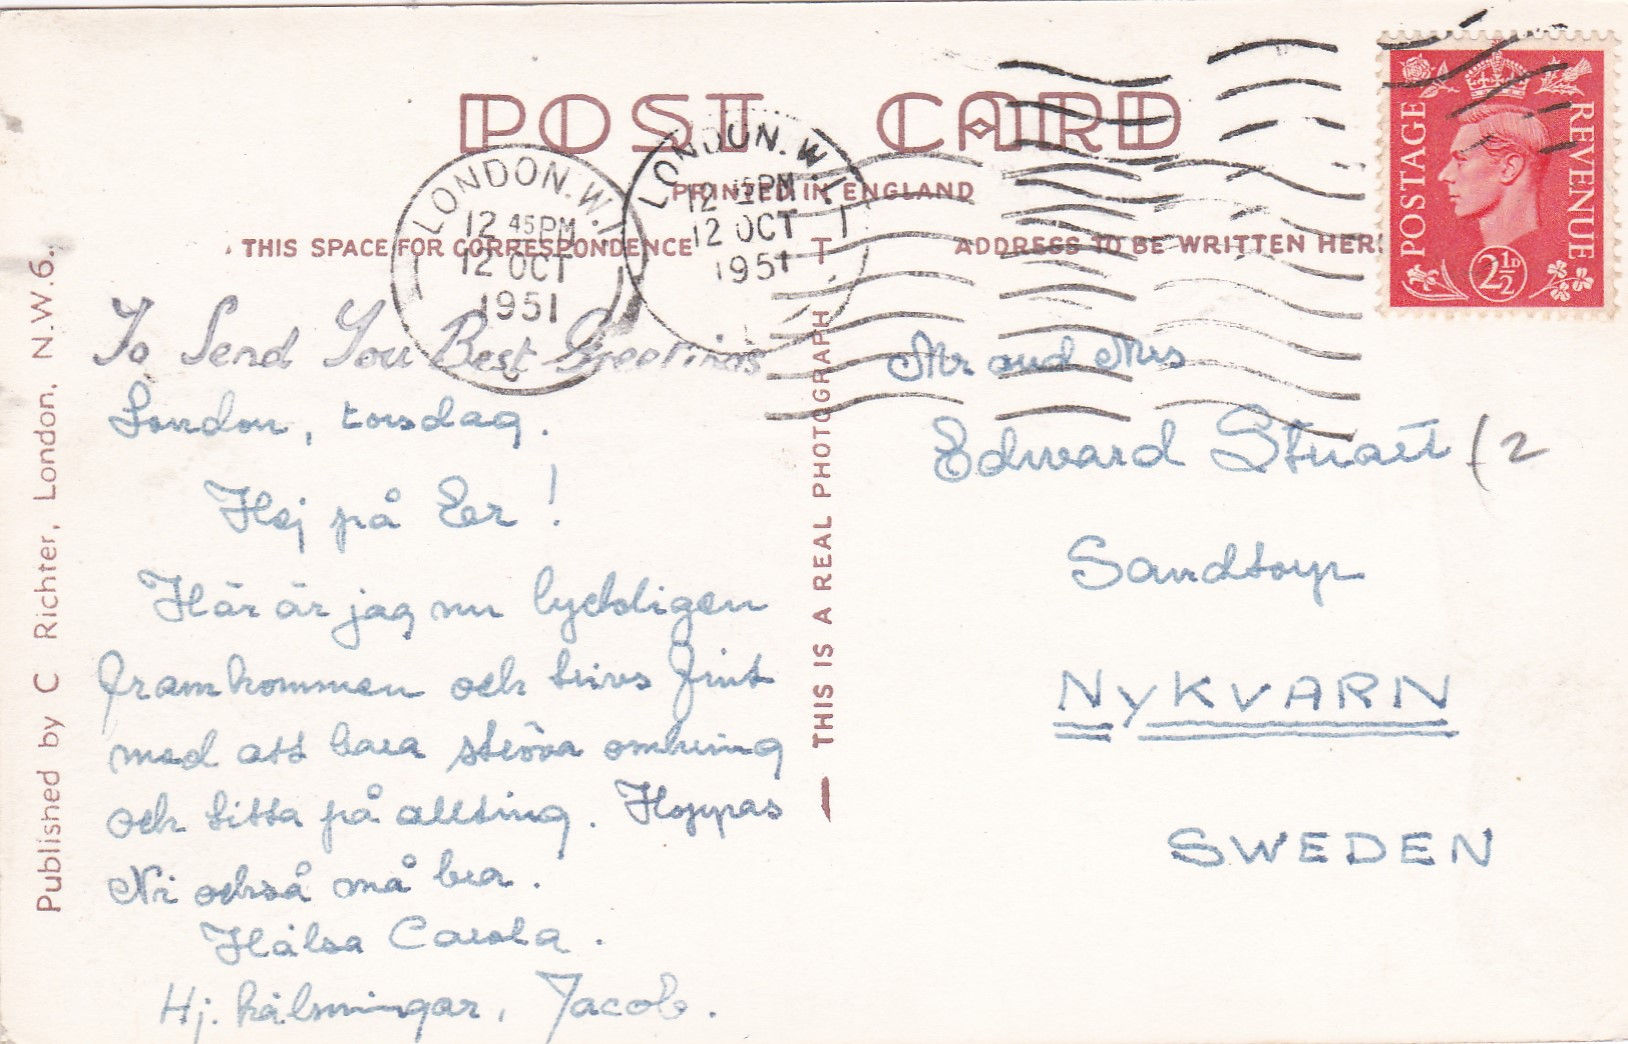 POST CARD
PRINTED IN ENGLAND
THIS SPACE FOR CORRESPONDENCE
ADDRESS TO BE WRITTEN HERE
LONDON.W.1
12 45PM
12 OCT
1951
LONDON.W.1
12 45PM
12 OCT
1951
POSTAGE
REVENUE
2½D
To Send You Best Greetings
London, torsdag.
Hej på Eer!
Här är jag nu lyckligen
framkommen och trivs fint
med att bara ströva omkring
och titta på allting. Hoppas
Ni också må bra.
Hälsa Carola.
Hj. hälsningar, Jacob.
Mr and Mrs
Edward Stuart (2
Sandtorp
NyKVARN
SWEDEN
THIS IS A REAL PHOTOGRAPH
Published by C Richter, London. N.W.6.